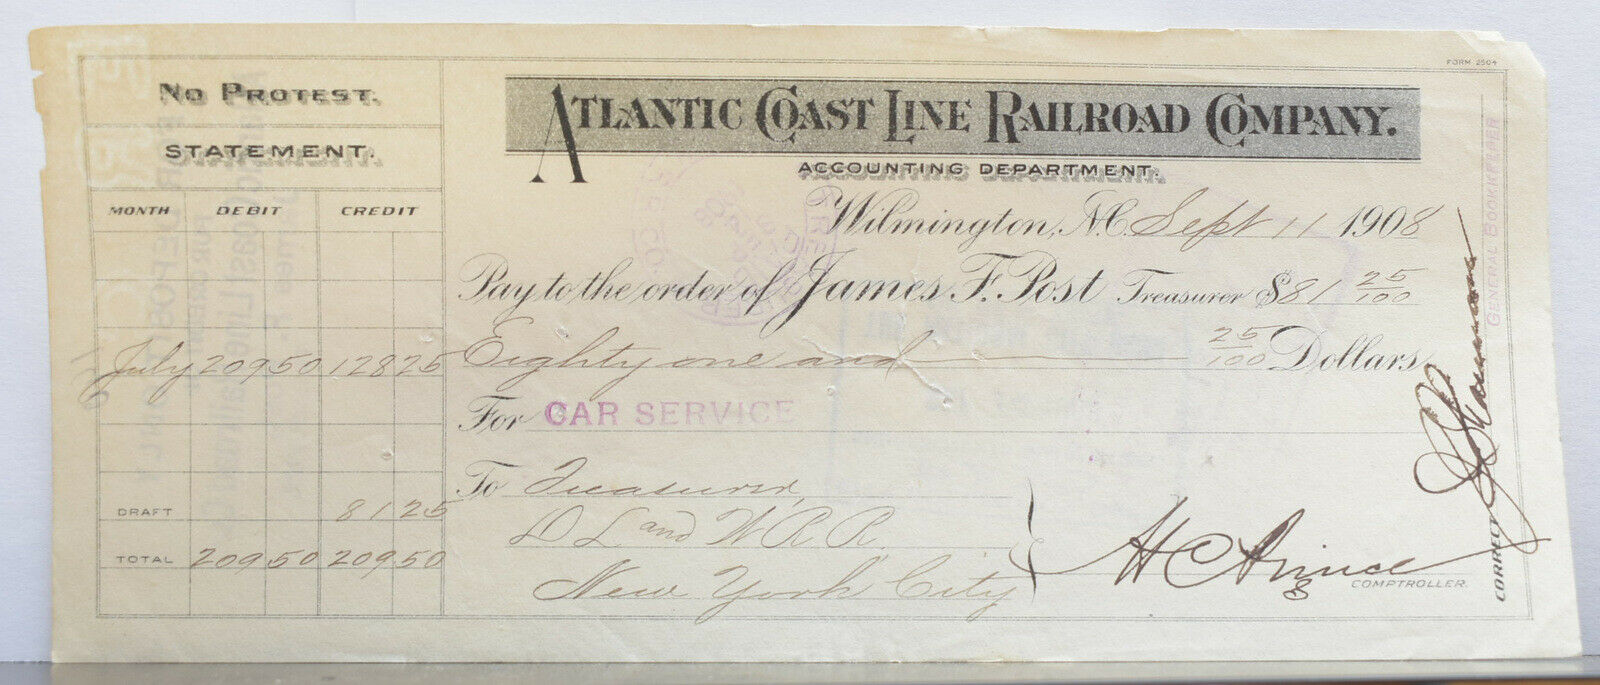 FORM 2504
NO PROTEST.
STATEMENT.
MONTH DEBIT CREDIT
July 209 50 128 25
DRAFT 81 25
TOTAL 209 50 209 50
ATLANTIC COAST LINE RAILROAD COMPANY.
ACCOUNTING DEPARTMENT.
Wilmington, N.C. Sept 11 1908
Pay to the order of James F. Post Treasurer $81 25/100
Eighty one and 25/100 Dollars
For CAR SERVICE
To Treasurer,
D L and W R R,
New York City
H C Prince
COMPTROLLER.
CORRECT
GENERAL BOOKKEEPER